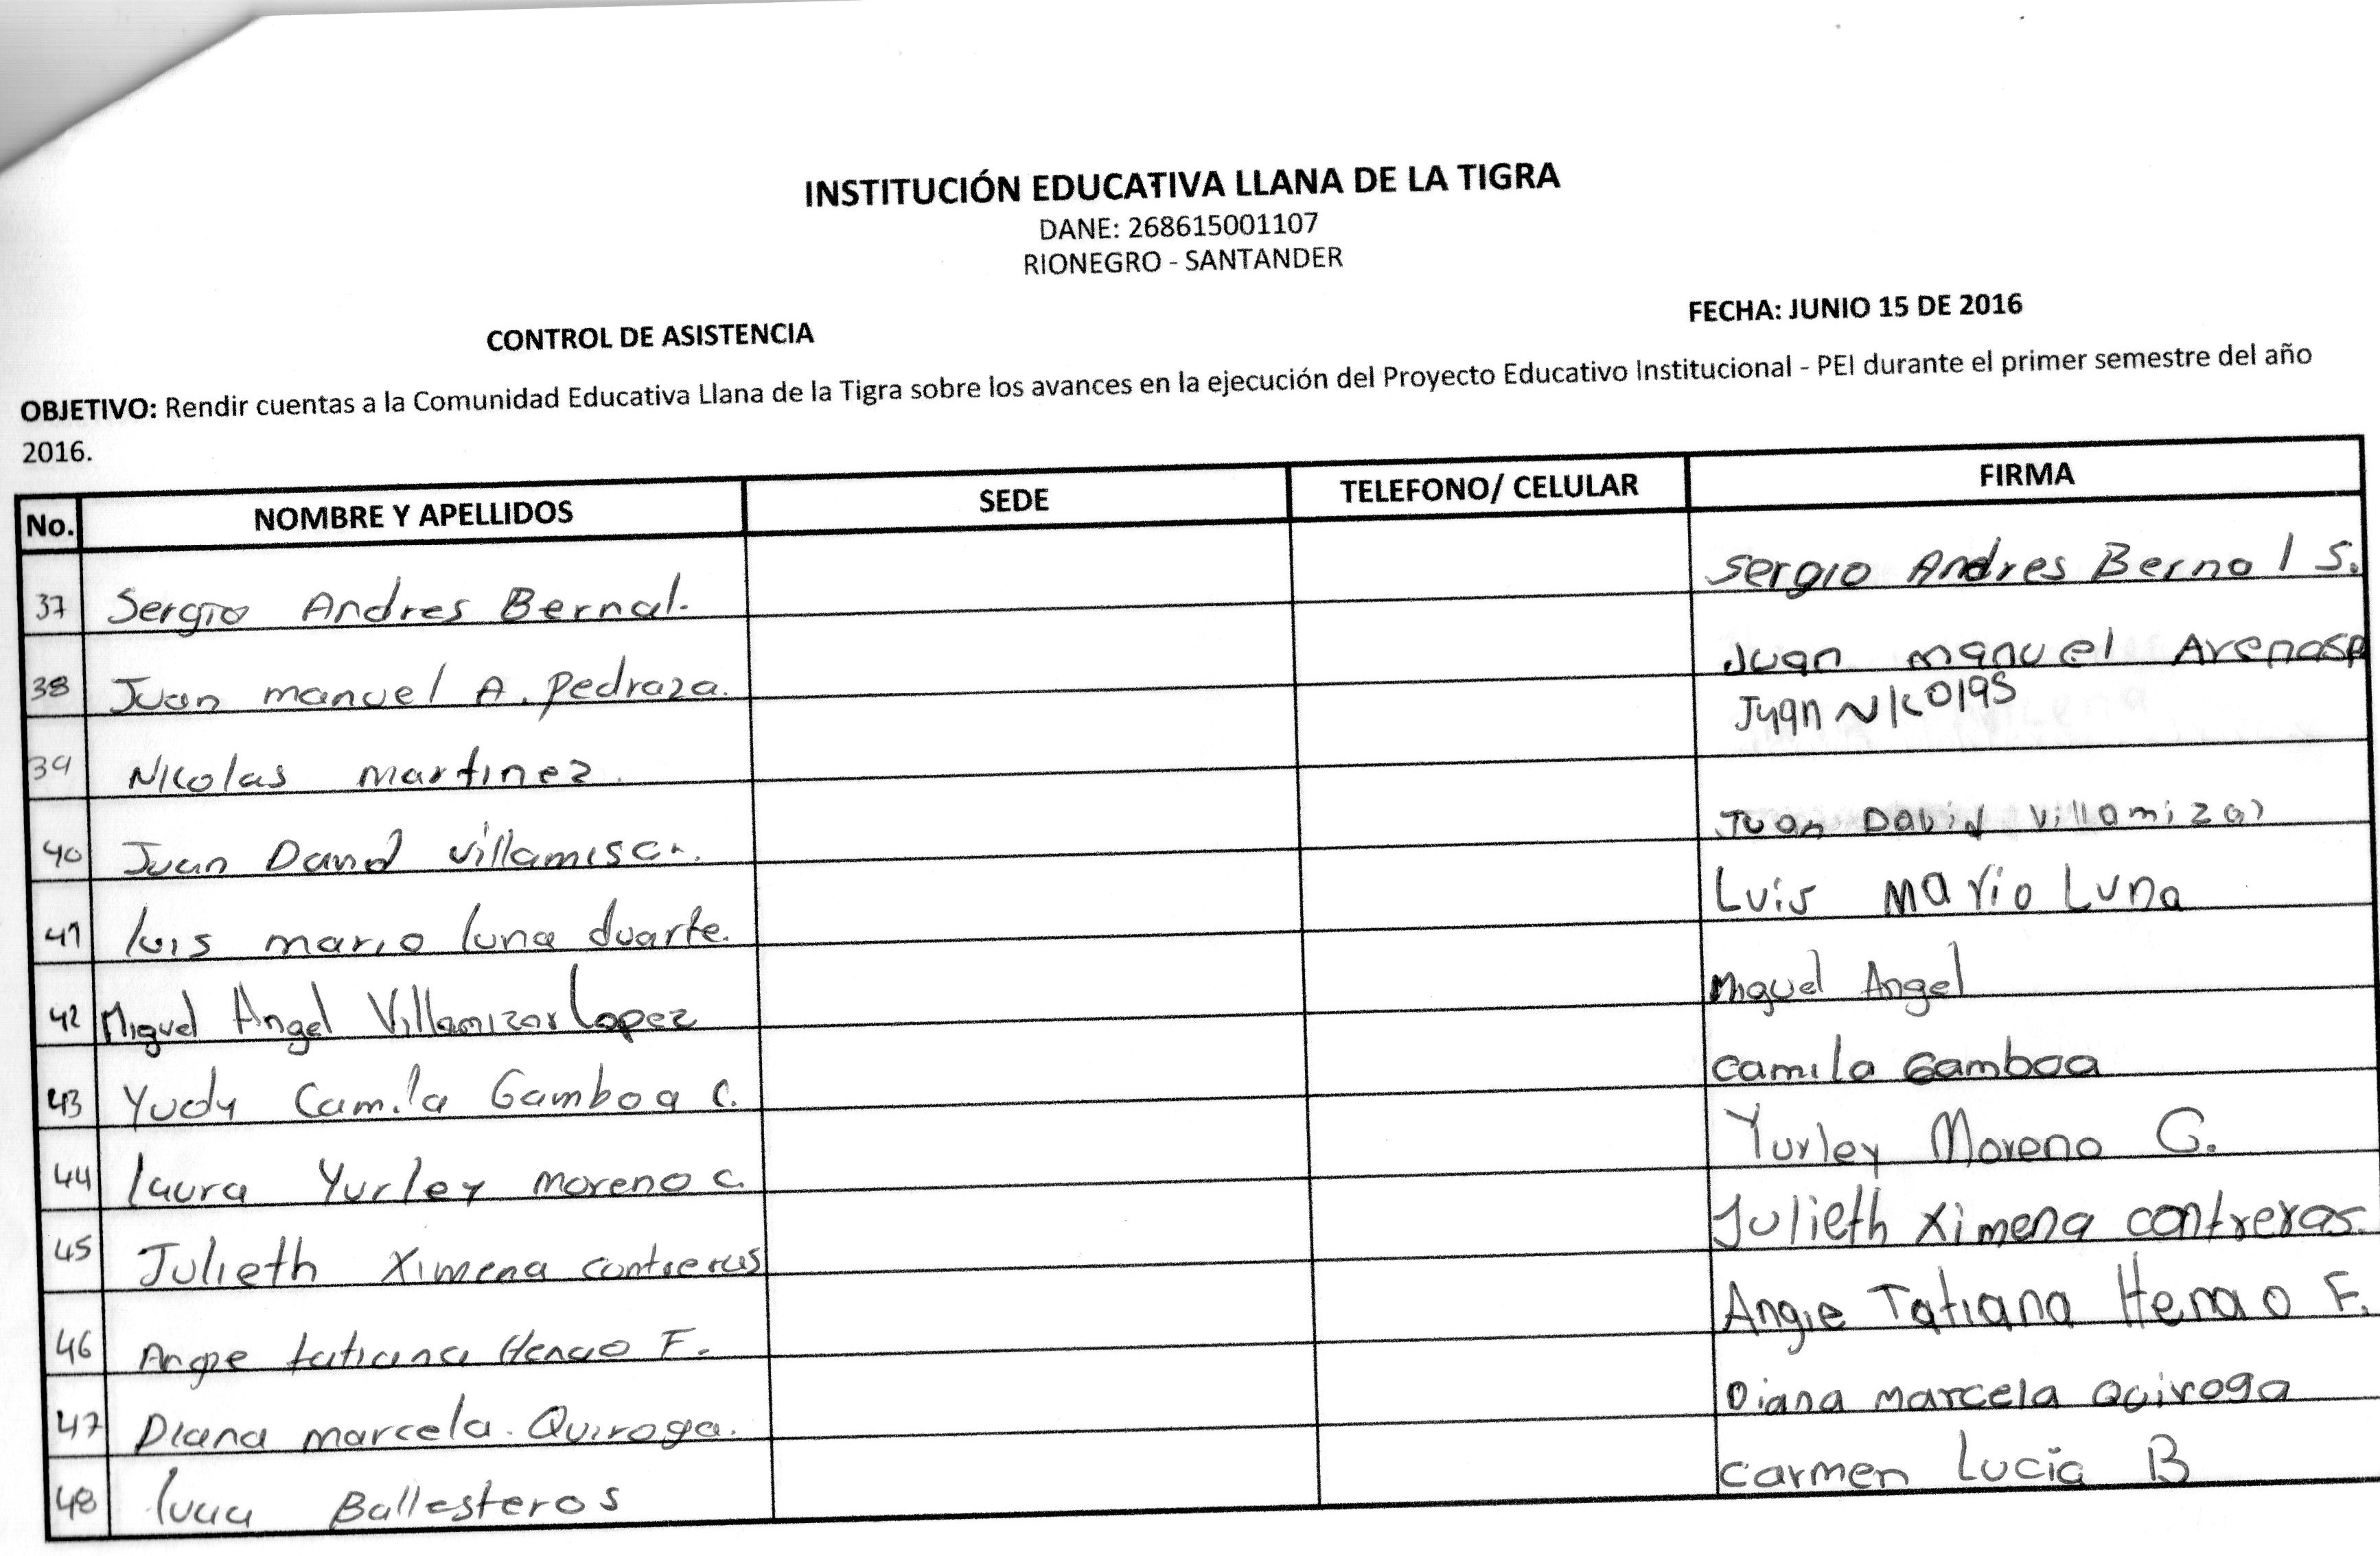 INSTITUCIÓN EDUCATIVA LLANA DE LA TIGRA
DANE: 268615001107
RIONEGRO - SANTANDER
CONTROL DE ASISTENCIA FECHA: JUNIO 15 DE 2016
OBJETIVO: Rendir cuentas a la Comunidad Educativa Llana de la Tigra sobre los avances en la ejecución del Proyecto Educativo Institucional - PEI durante el primer semestre del año
2016.
No. NOMBRE Y APELLIDOS SEDE TELEFONO/ CELULAR FIRMA
37 Sergio Andres Bernal. Sergio Andres Bernal S.
38 Juan manuel A. Pedraza. Juan manuel Arenas P
39 Nikolas martinez. Juan Nikolas
40 Juan David villamisar. Juan David villamizar
41 luis mario luna duarte. Luis Mario Luna
42 Miguel Angel Villamizar Lopez Miguel Angel
43 Yudy Camila Gamboa C. Camila Gamboa
44 laura Yurley moreno c. Yurley Moreno C.
45 Julieth Ximena contreras Julieth Ximena contreras.
46 Angie tatiana Henao F. Angie Tatiana Henao F.
47 Diana marcela. Quiroga. Diana Marcela Quiroga
48 lucia Ballesteros Carmen Lucia B